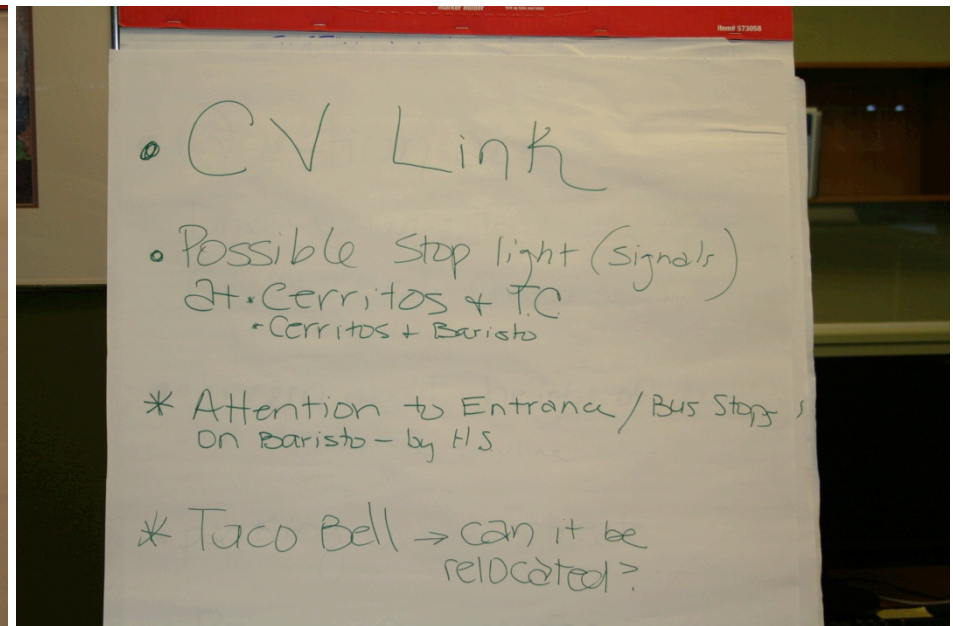 Item# 573058
• CV Link
• Possible Stop light (signals)
at • Cerritos + T.C
• Cerritos + Baristo
* Attention to Entrance / Bus Stops
On Baristo - by HS
* Taco Bell → can it be
relocated?